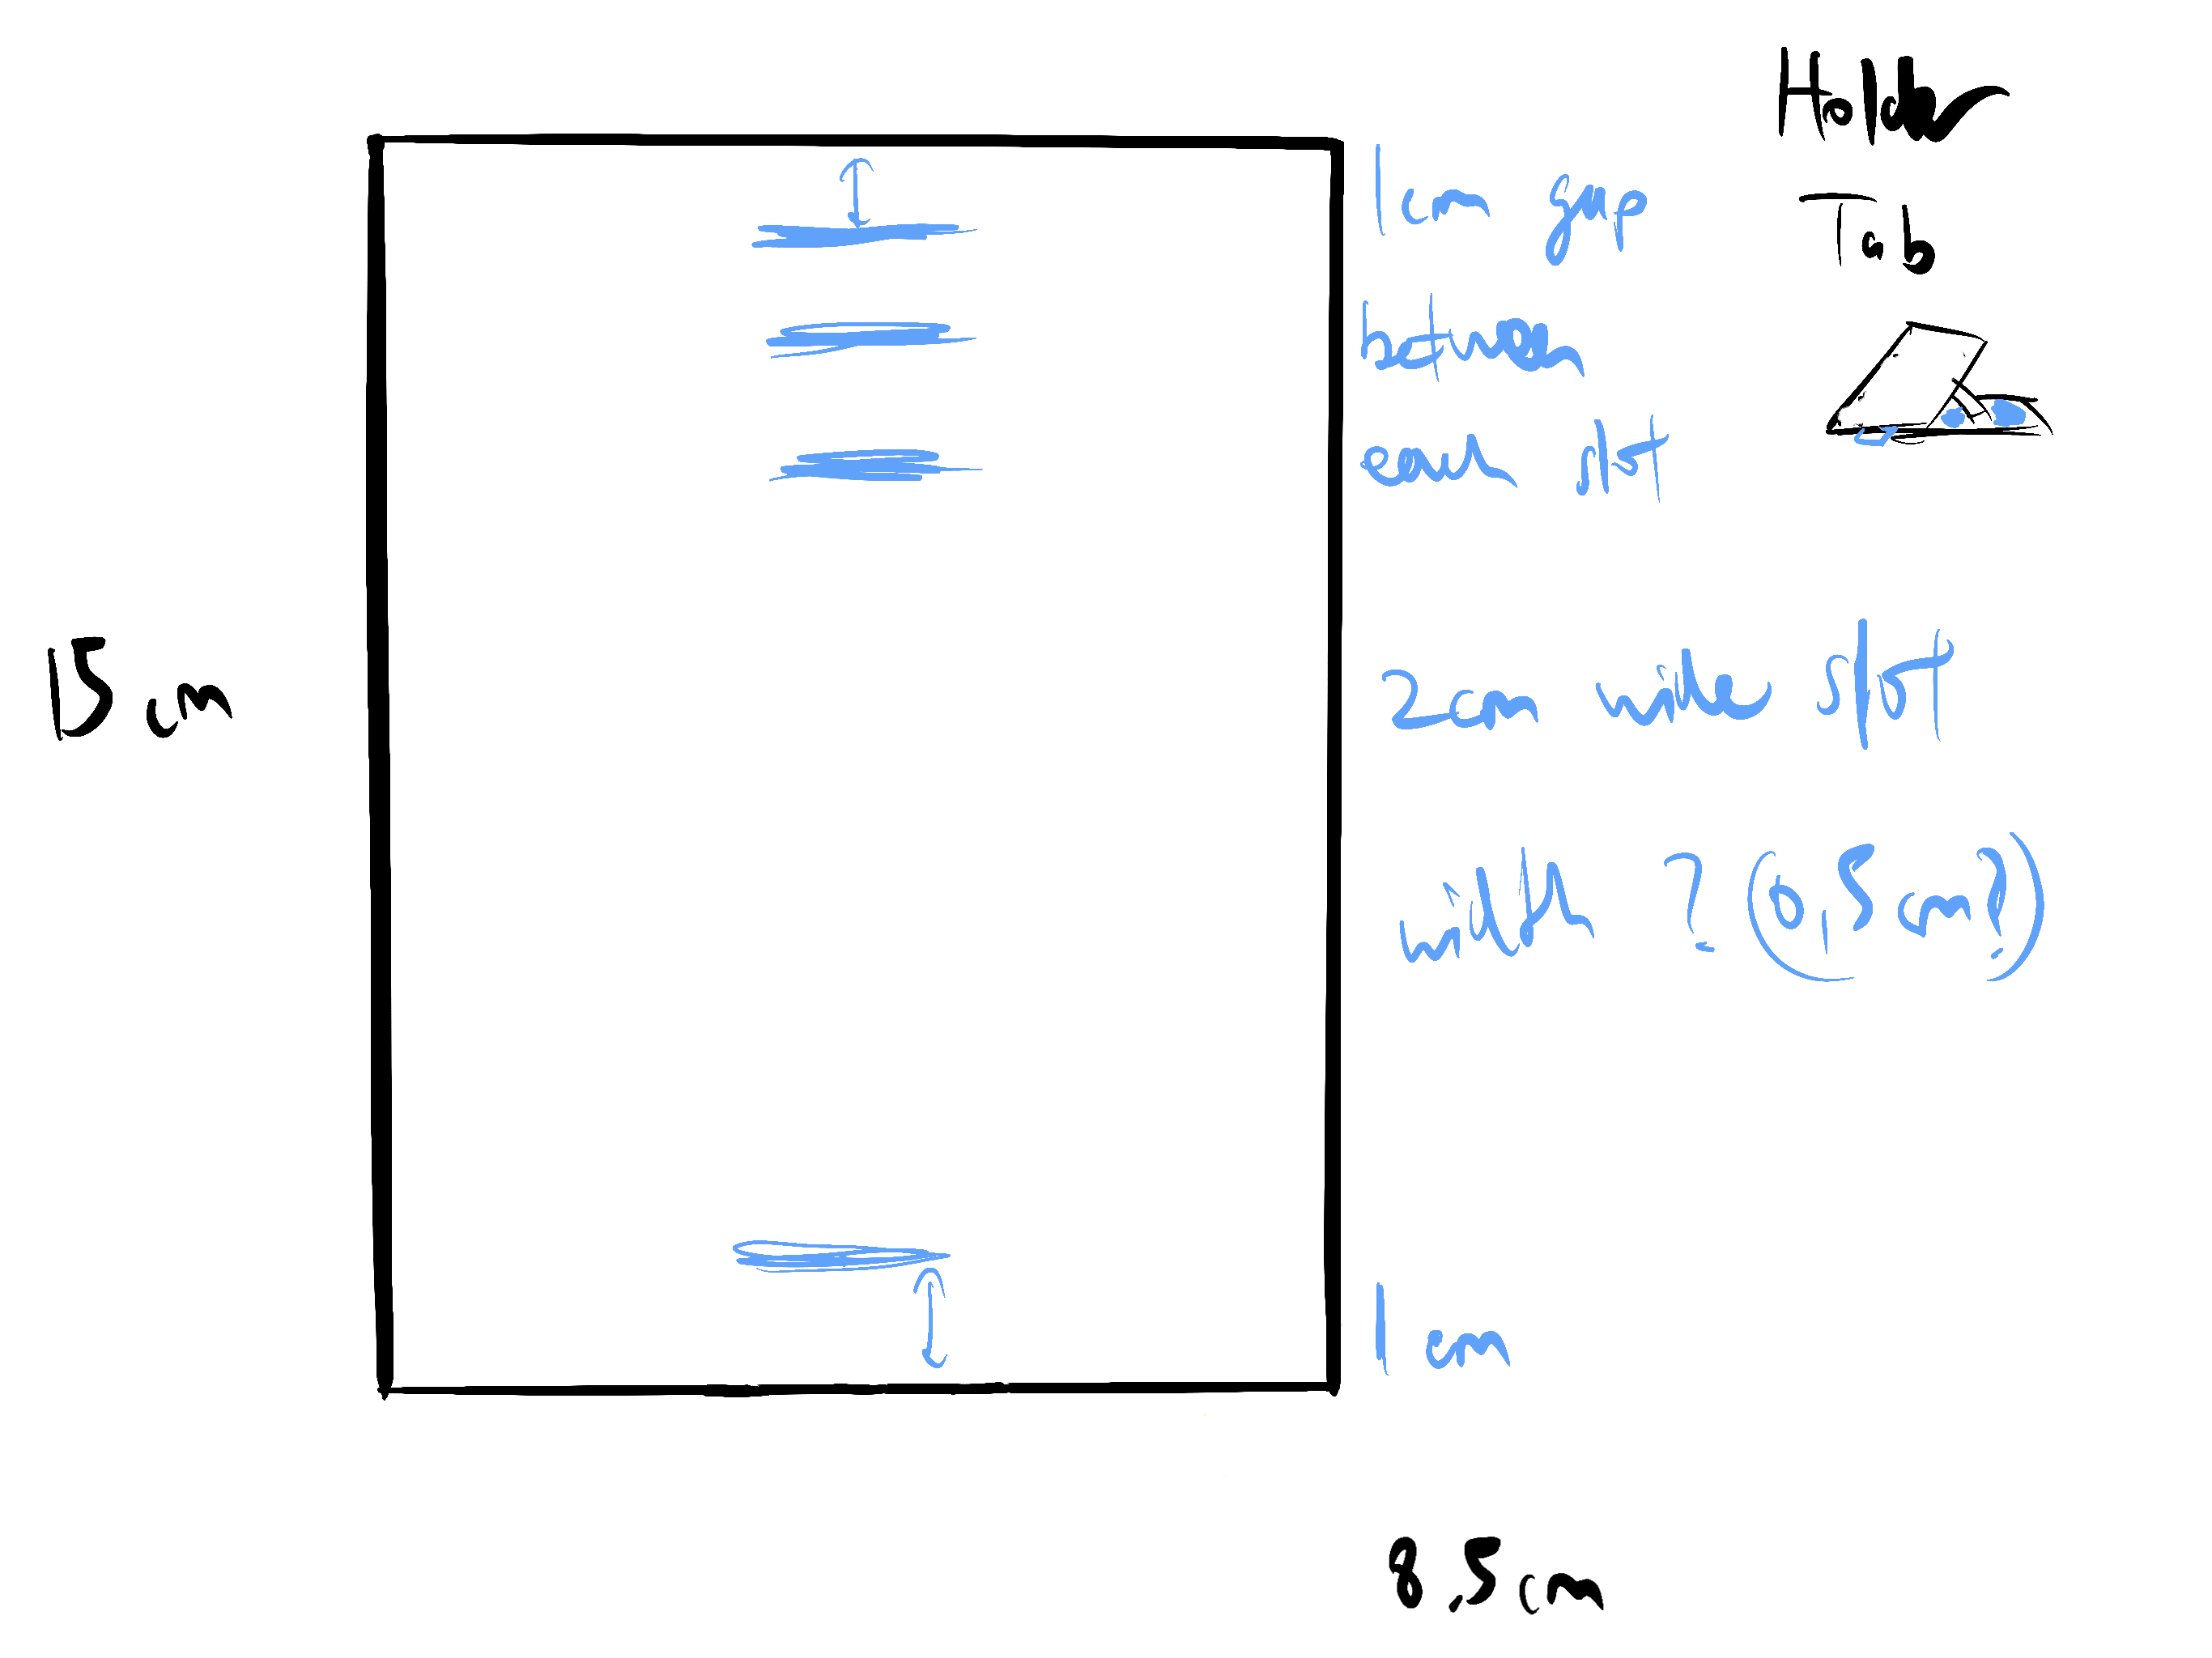 Holder
Tab
1cm gap
between
each slot
15cm
2cm wide slot
width ? (0,5cm?)
1cm
8,5cm